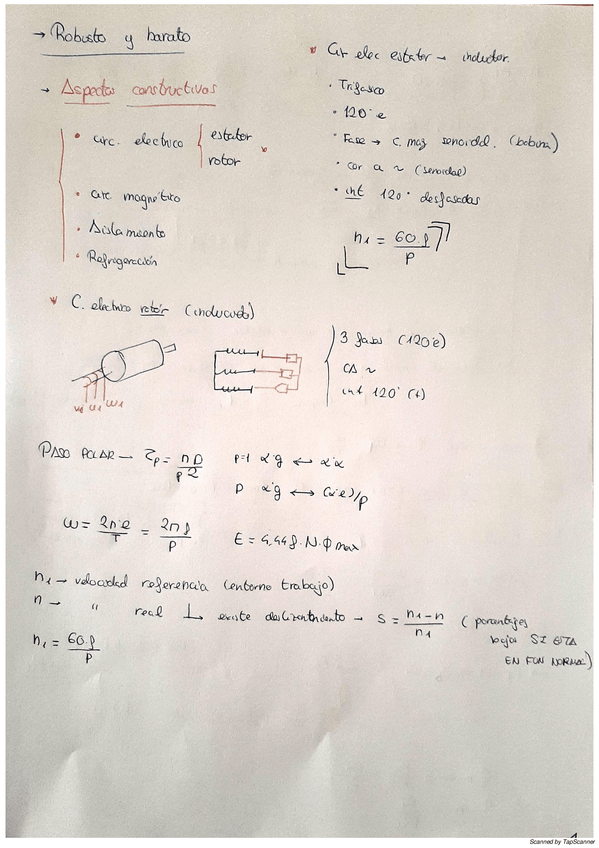 → Robusto y barato
→ Aspectos constructivos
• circ. electrico { estator
rotor
• circ magnético
• Aislamiento
• Refrigeración
Cir elec estator → inductor.
• Trifasico
• 120° e
• Fase → c. mag senoidal. (bobina)
• cor a ~ (senoidal)
• int 120° desfasadas
n1 = 60.f / p
C. electrico rotor (inducido)
3 fases (120°e)
CA ~
int 120° (t)
PASO POLAR → τp = πD / p2
p=1 α°g ↔ α°α
p α°g ↔ (α°e)/p
ω = 2π·e / T = 2πf / p
E = 4,44f.N.Φmax
n1 → velocidad referencia (entorno trabajo)
n → " real ↳ existe deslizamiento → s = n1-n / n1 (porcentajes
bajos SI ESTA
EN FUN NORMAL)
n1 = 60.f / p
1
Scanned by TapScanner